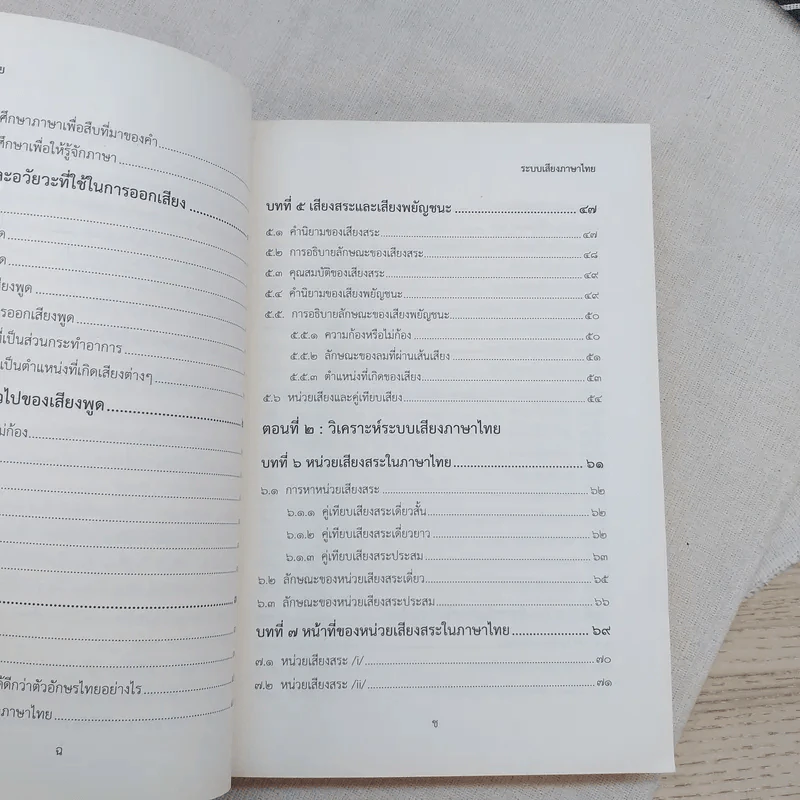 ศึกษาภาษาเพื่อสืบที่มาของคำ
ศึกษาเพื่อให้รู้จักภาษา
ละอวัยวะที่ใช้ในการออกเสียง
เสียงพูด
ารออกเสียงพูด
ที่เป็นส่วนกระทำอาการ
เป็นตำแหน่งที่เกิดเสียงต่างๆ
ไปของเสียงพูด
ไม่ก้อง
ได้ดีกว่าตัวอักษรไทยอย่างไร
ภาษาไทย
ฉ
ระบบเสียงภาษาไทย
บทที่ ๕ เสียงสระและเสียงพยัญชนะ ๔๗
๕.๑ คำนิยามของเสียงสระ ๔๗
๕.๒ การอธิบายลักษณะของเสียงสระ ๔๘
๕.๓ คุณสมบัติของเสียงสระ ๔๙
๕.๔ คำนิยามของเสียงพยัญชนะ ๔๙
๕.๕. การอธิบายลักษณะของเสียงพยัญชนะ ๕๐
๕.๕.๑ ความก้องหรือไม่ก้อง ๕๐
๕.๕.๒ ลักษณะของลมที่ผ่านเส้นเสียง ๕๑
๕.๕.๓ ตำแหน่งที่เกิดของเสียง ๕๓
๕.๖ หน่วยเสียงและคู่เทียบเสียง ๕๔
ตอนที่ ๒ : วิเคราะห์ระบบเสียงภาษาไทย
บทที่ ๖ หน่วยเสียงสระในภาษาไทย ๖๑
๖.๑ การหาหน่วยเสียงสระ ๖๒
๖.๑.๑ คู่เทียบเสียงสระเดี่ยวสั้น ๖๒
๖.๑.๒ คู่เทียบเสียงสระเดี่ยวยาว ๖๒
๖.๑.๓ คู่เทียบเสียงสระประสม ๖๓
๖.๒ ลักษณะของหน่วยเสียงสระเดี่ยว ๖๕
๖.๓ ลักษณะของหน่วยเสียงสระประสม ๖๖
บทที่ ๗ หน้าที่ของหน่วยเสียงสระในภาษาไทย ๖๙
๗.๑ หน่วยเสียงสระ /i/ ๗๐
๗.๒ หน่วยเสียงสระ /ii/ ๗๑
ช